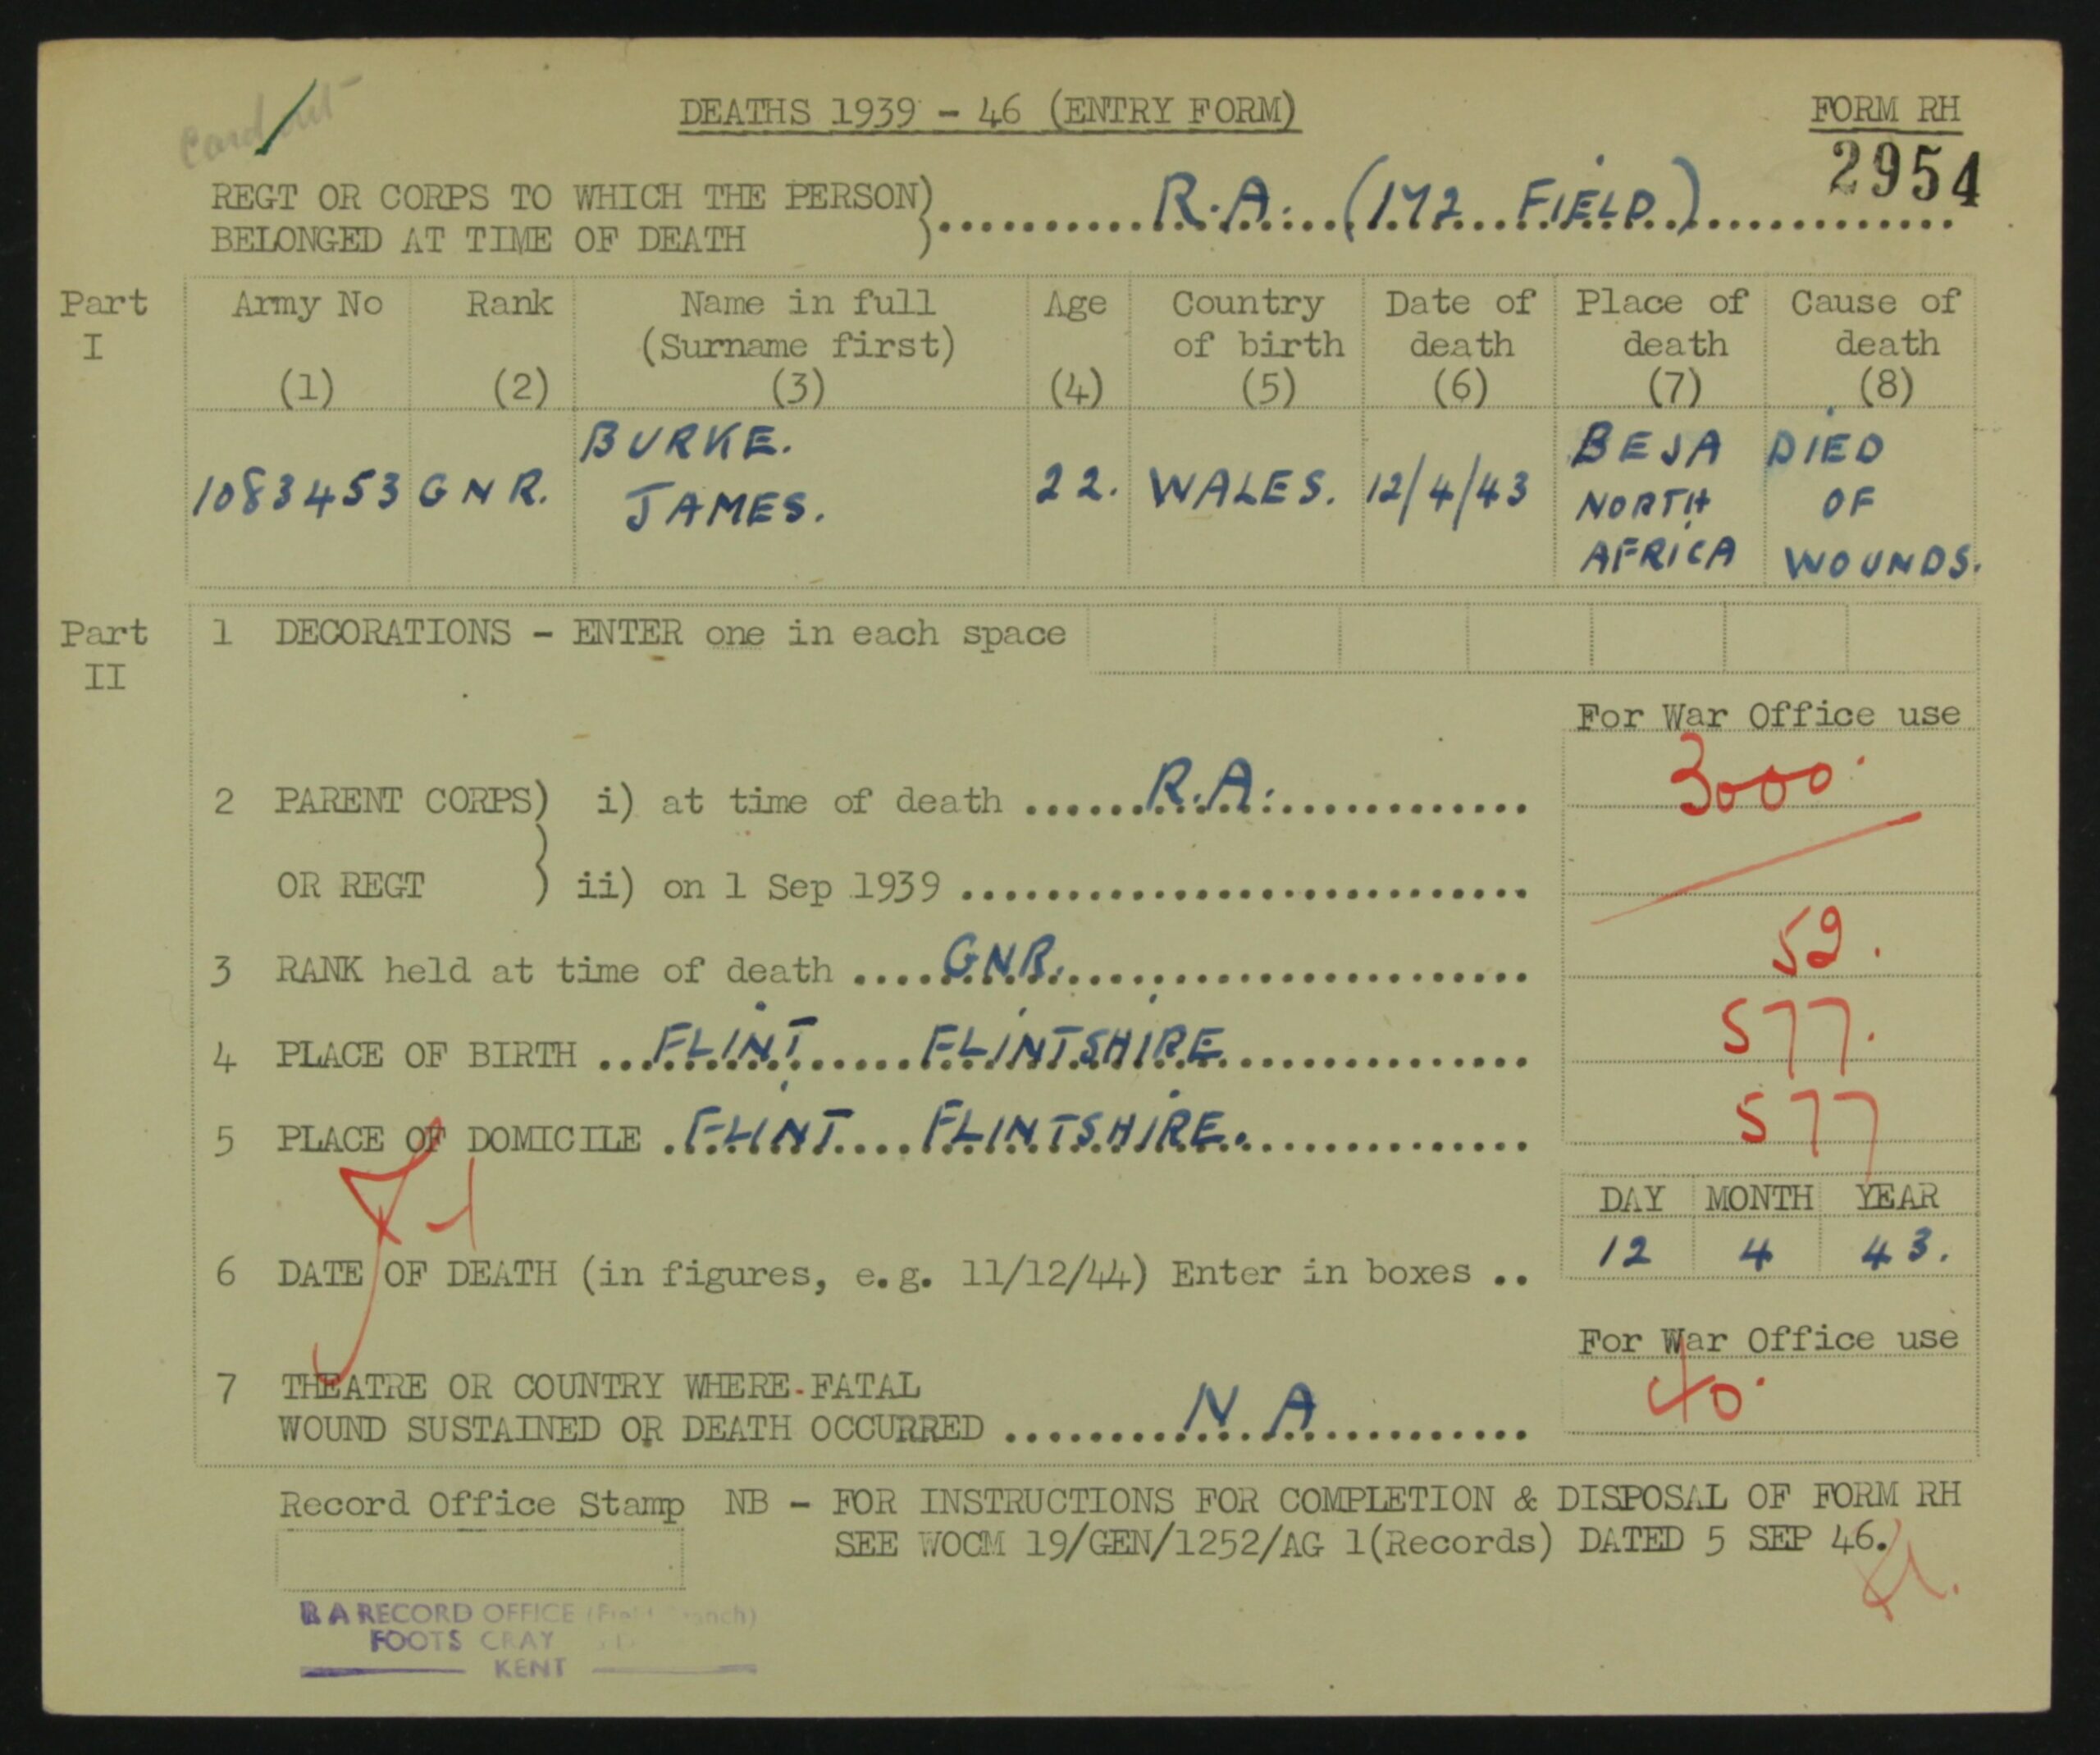 Card
DEATHS 1939 - 46 (ENTRY FORM)
FORM RH
2954
REGT OR CORPS TO WHICH THE PERSON) R.A. (172 FIELD)
BELONGED AT TIME OF DEATH )
Part I
Army No (1) Rank (2) Name in full (Surname first) (3) Age (4) Country of birth (5) Date of death (6) Place of death (7) Cause of death (8)
1083453 GNR. BURKE. JAMES. 22. WALES. 12/4/43 BEJA NORTH AFRICA DIED OF WOUNDS.
Part II
1 DECORATIONS - ENTER one in each space
For War Office use
2 PARENT CORPS) i) at time of death ...... R.A. 3000.
OR REGT ) ii) on 1 Sep 1939 ......
3 RANK held at time of death .... GNR. 52.
4 PLACE OF BIRTH ... FLINT FLINTSHIRE 577.
5 PLACE OF DOMICILE . FLINT FLINTSHIRE. 577
DAY MONTH YEAR
6 DATE OF DEATH (in figures, e.g. 11/12/44) Enter in boxes .. 12 4 43.
For War Office use
7 THEATRE OR COUNTRY WHERE FATAL
WOUND SUSTAINED OR DEATH OCCURRED ...... N A 40.
Record Office Stamp NB - FOR INSTRUCTIONS FOR COMPLETION & DISPOSAL OF FORM RH
SEE WOCM 19/GEN/1252/AG 1(Records) DATED 5 SEP 46.
R A RECORD OFFICE (Field Branch)
FOOTS CRAY
KENT